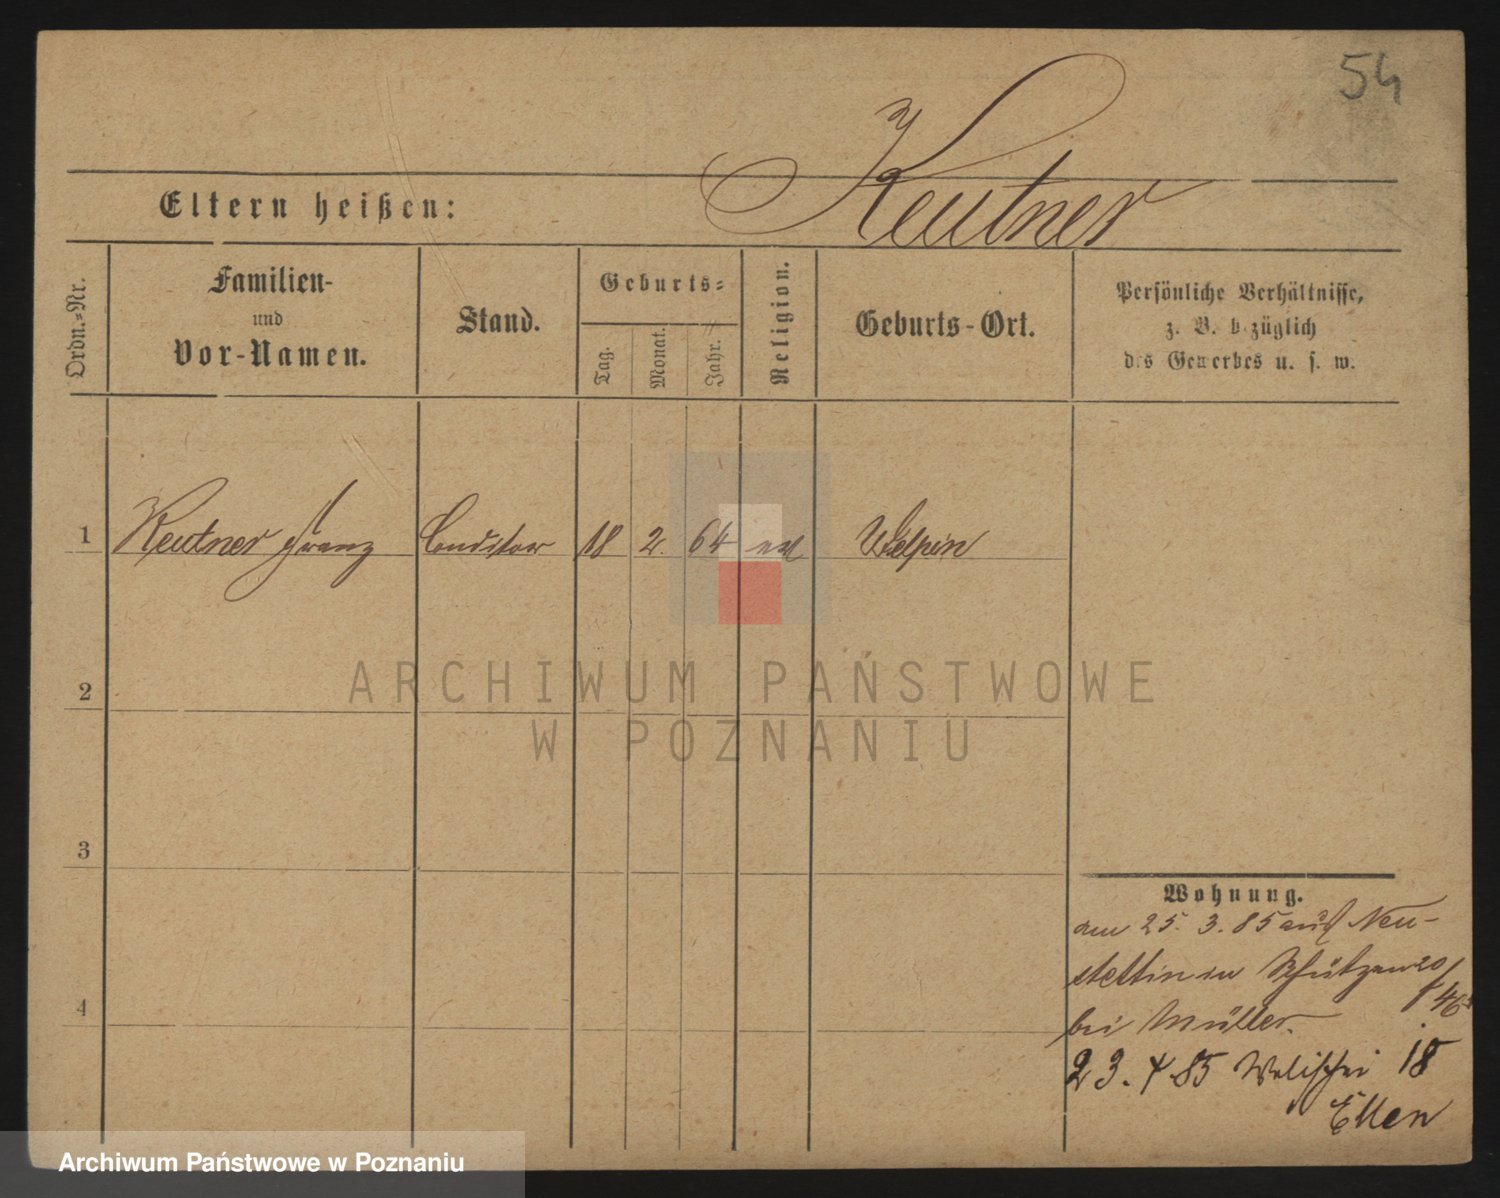 54
Keutner
Eltern heißen:
Ordn.=Nr.
Familien-
und
Vor-Namen.
Stand.
Geburts=
Tag.
Monat.
Jahr.
Religion.
Geburts-Ort.
Persönliche Verhältnisse,
z. B. bezüglich
des Gewerbes u. s. w.
1 Keutner Franz Conditor 18 2. 64
2
3
4
Wohnung.
am 25. 3. 85 aus Neu-
stettin in Schützen 20/
bei Müller.
23. 4 85 Walischei 18
Ellen
ARCHIWUM PAŃSTWOWE
W POZNANIU
Archiwum Państwowe w Poznaniu